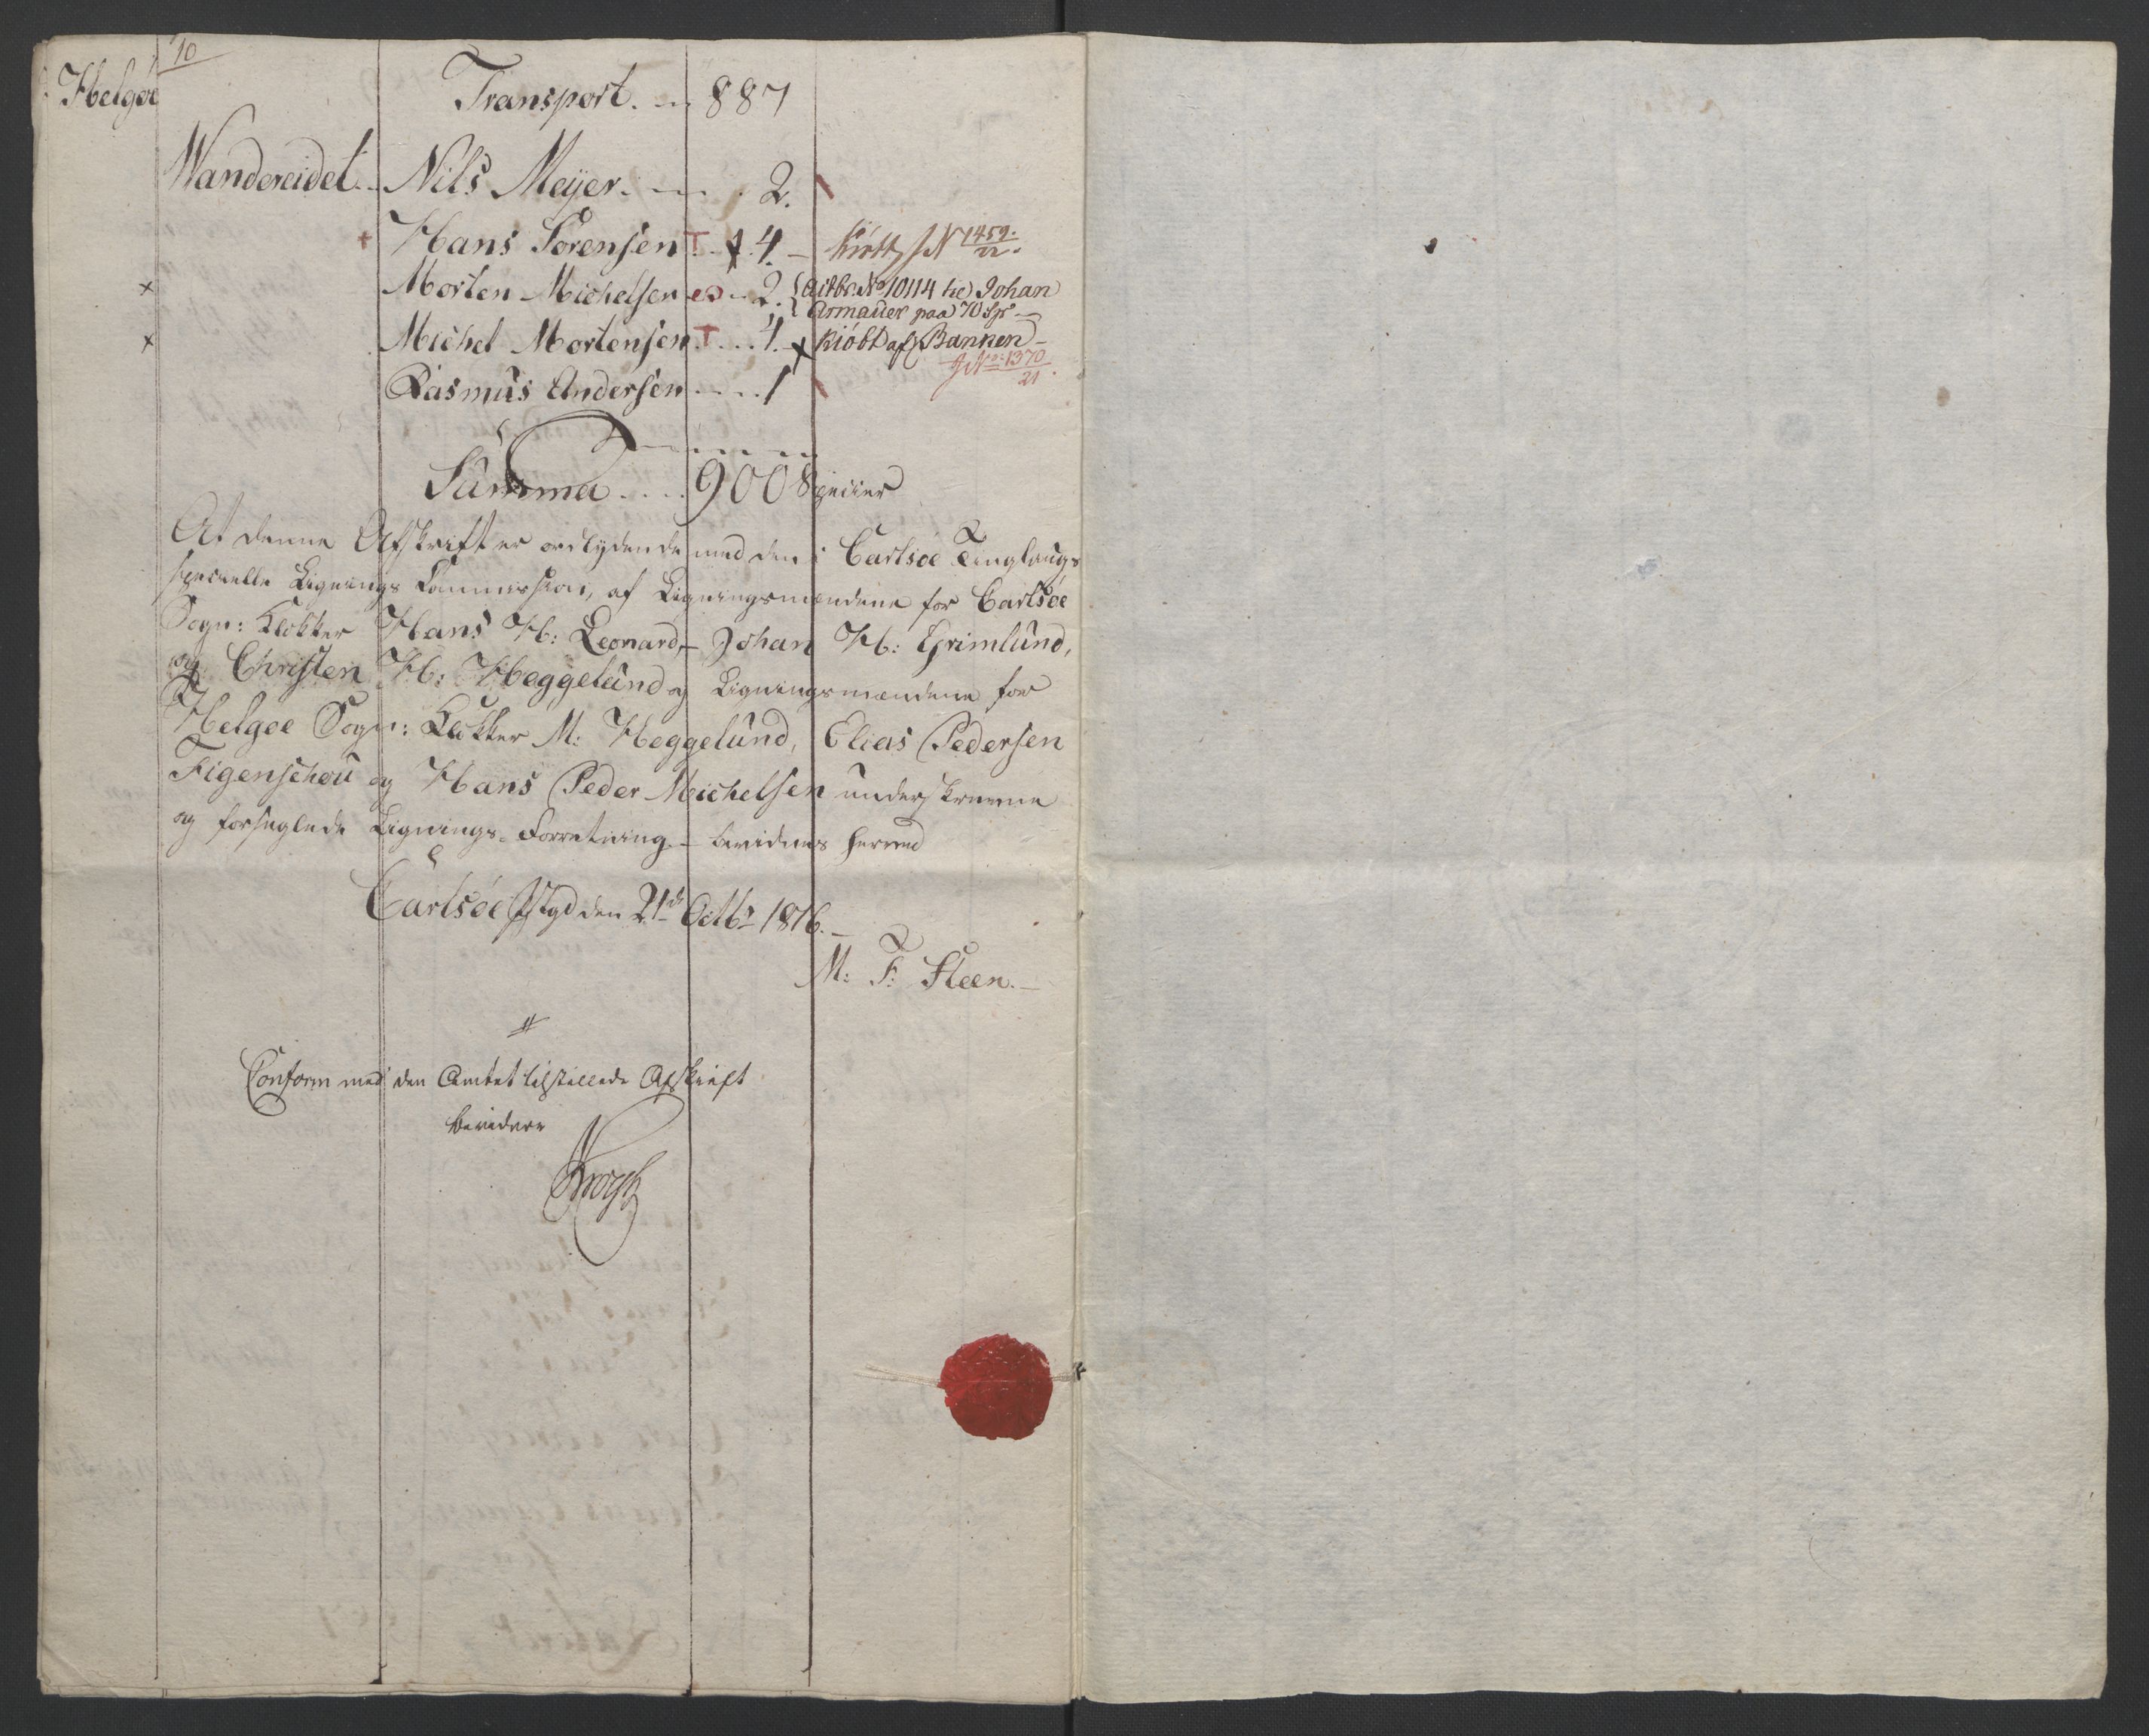 10
Helgøe
Transport. — 887
Wandereidet. Nils Meÿer. — 2.
+ Hans Sörensen T 4. — Kiøbt J N 1459/22.
x Morten Michelsen — 2. { Actbr. No 10114 til Johan
Armauer paa 70 Sp —
x Michel Mortensen T .. 4. x Kiöbt af Banken —
J No: 1370/21.
Rasmus Andersen .... 1
Summa .... 900 Specier
At denne Afskrift er ordlydende med den i Carlsöe Tinglaugs
specielle Lignings Commission, af Ligningsmændene for Carlsöe
Sogn: Klokker Hans H: Leonard, – Johan H: Grimlund,
og Christen H: Heggelund og Ligningsmændene for
Helgøe Sogn: Klokker M: Heggelund, Elias Pedersen
Figenschou og Hans Peder Michelsen underskrevne
og forseglede Lignings-Forretning. – bevidnes herved
Carlsöe Pstgd den 21de Octbr 1816. —
M: F: Steen. —
Conform med den Amtet tilstillede Afskrift
bevidner
Krogh